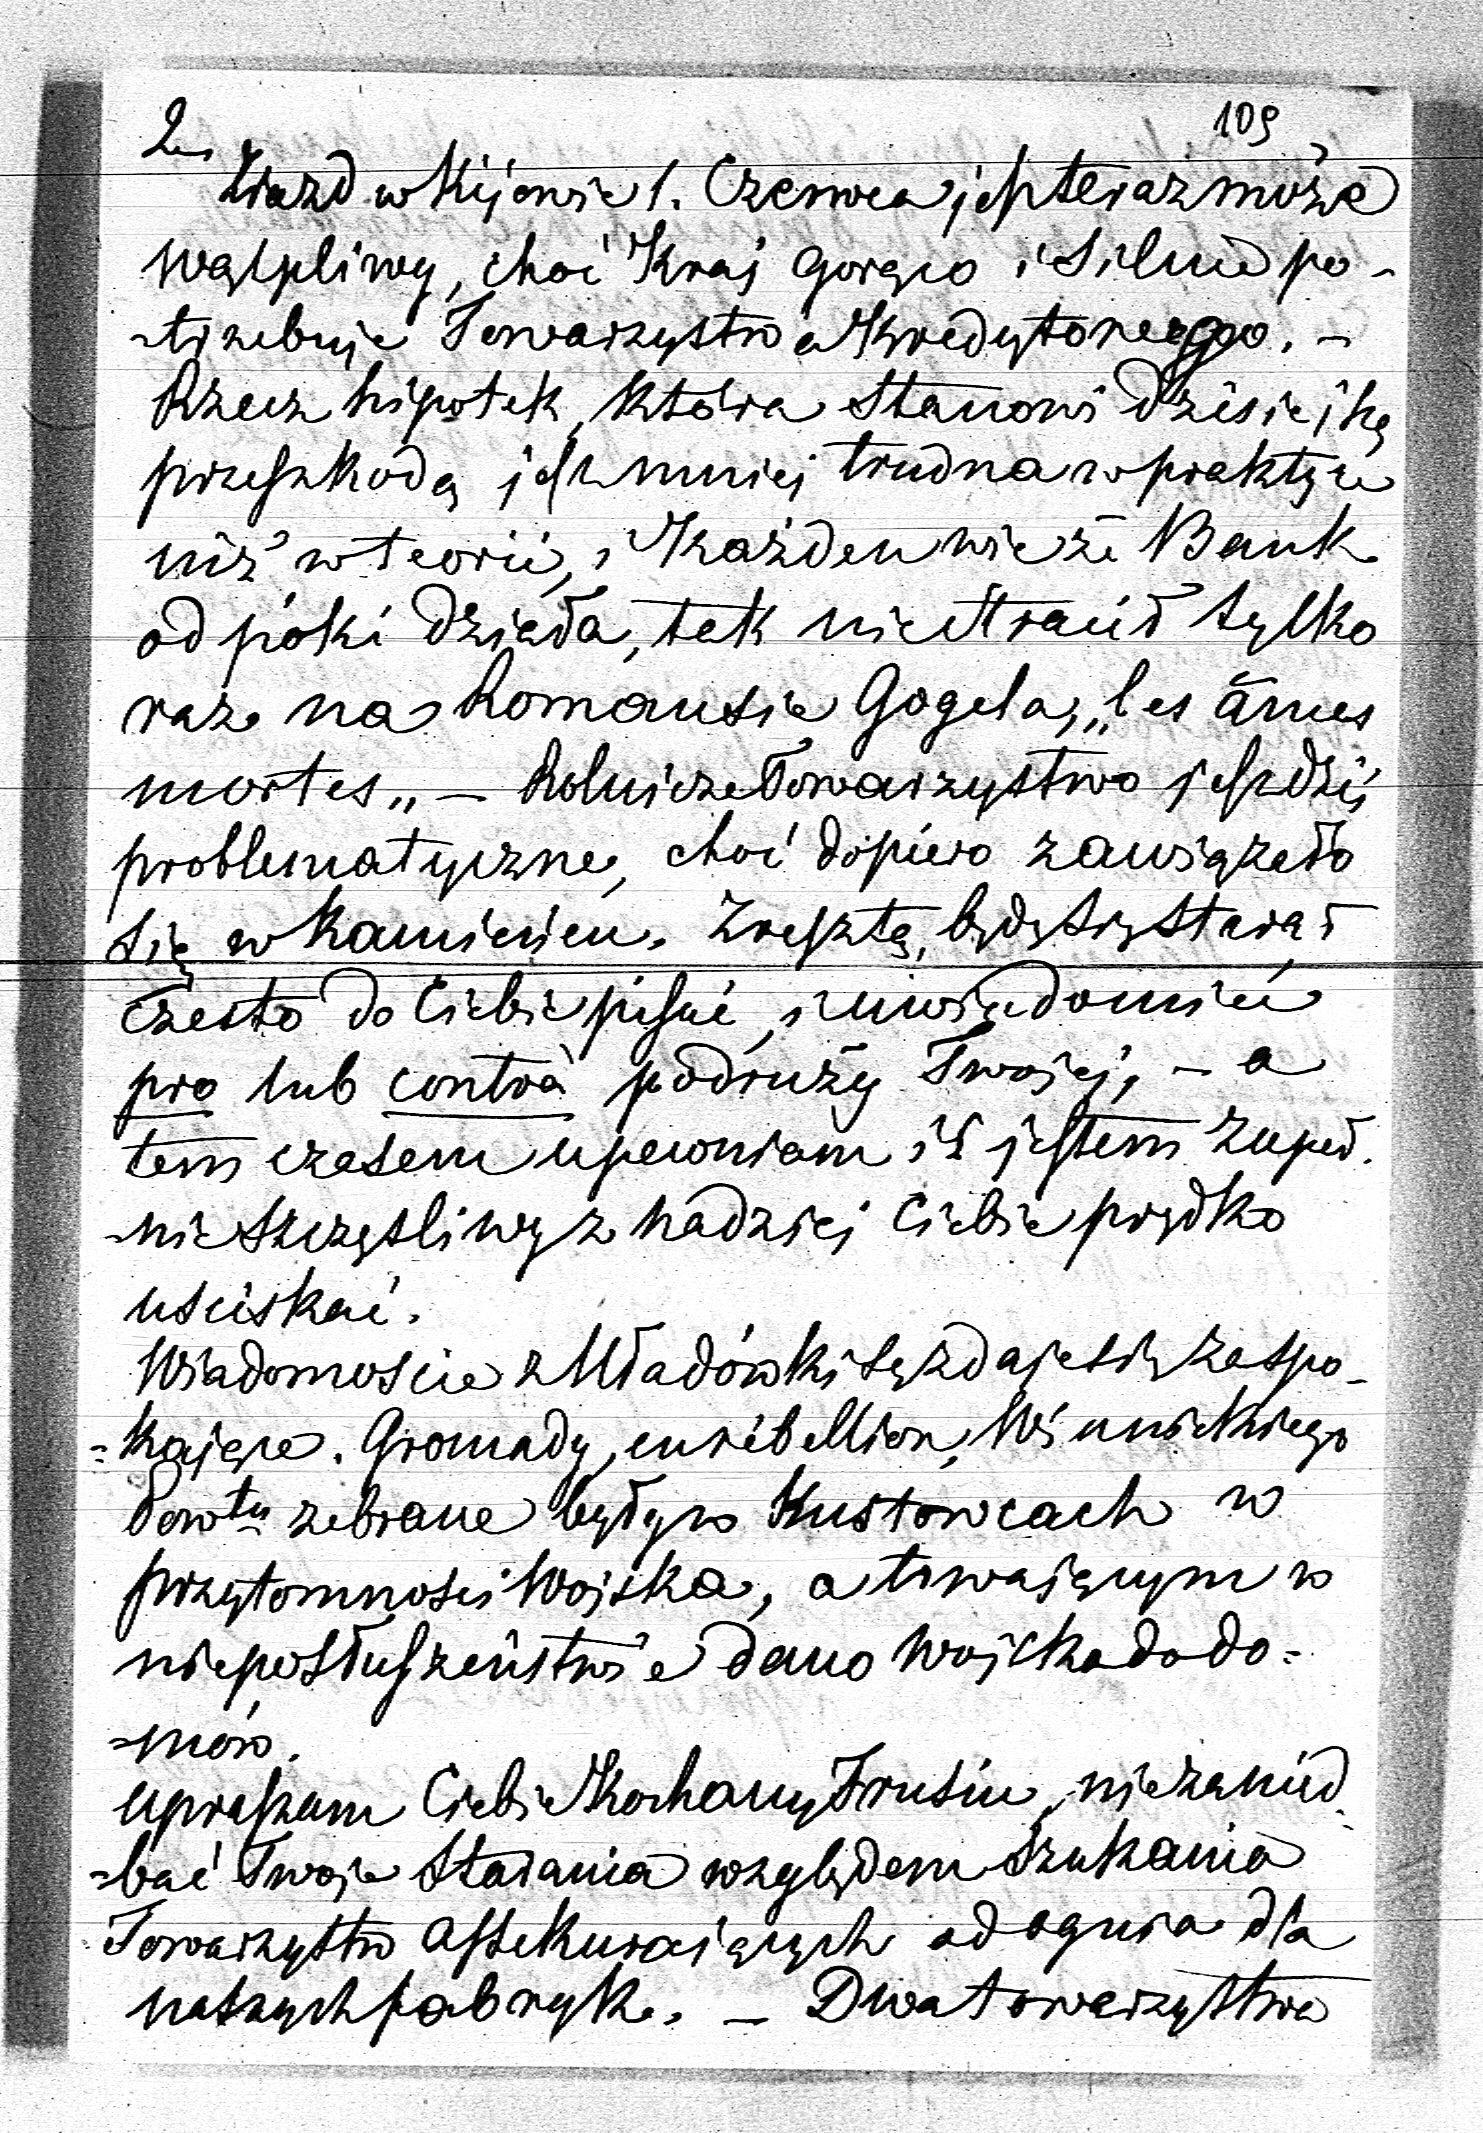 2
109
Zjazd w Kijowie 1. Czerwca jest teraz może
wątpliwy, choć Kraj gorąco i silnie po-
-trzebuje Towarzystwa Kredytowego. -
Rzecz hipotek, która stanowi dzisiejszą
przeszkodą jest mniej trudna w praktyce
niż w teorii, i Każden wie że Bank
od póki działa, tak nie stracił tylko
raz na Romansie Gogela, „les âmes
mortes„ - Rolnicze Towarzystwo jest dziś
problematyczne, choć dopiero zawiązało
się w Kamieńcu. Zresztą, będę się starał
często do Ciebie pisać, i uwiadomić
pro lub contrà podróży Twojej, - a
tem czasem upewniam iż jestem zupeł.
-nie szczęśliwy z nadziej Ciebie prędko
uściskać.
Wiadomoście z Uładówki są zdaje się zaspo-
=kające. Gromady, en rébellion,
Powtu zebrane były w Kustowcach w
przytomności Wojska, a trwającym w
nieposłuszeństwie dano wojska do do=
=mów.
Upraszam Ciebie Kochany Frusiu, nie zanied
=bać Twoje starania względem szukania
Towarzystw assekurających od ognia dla
naszych fabryk. - Dwa towarzystwa